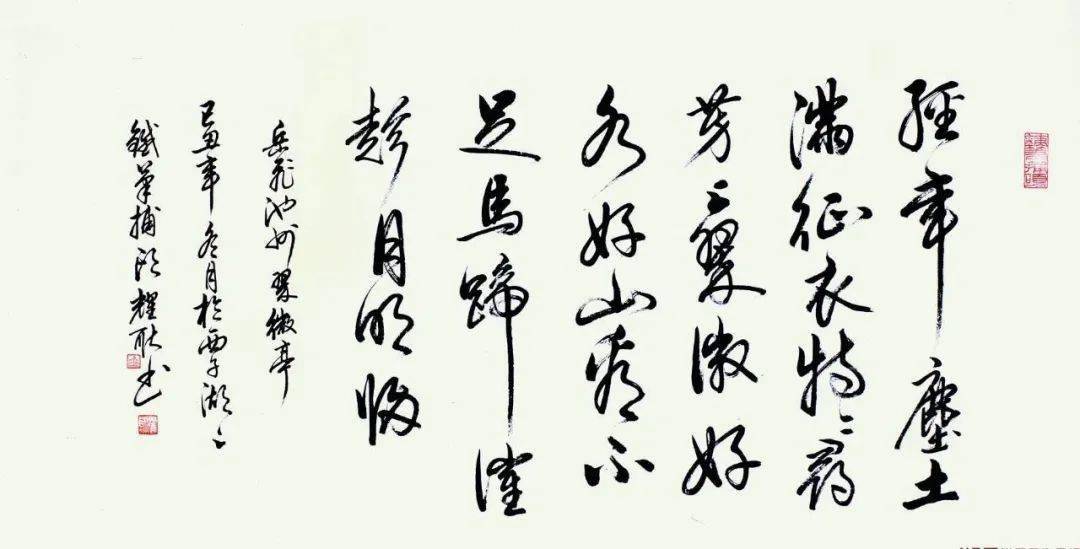 經年塵土
滿征衣特特尋
芳上翠微好
水好山看不
足馬蹄催
趁月明歸
岳飛池州翠微亭
己丑年冬月於西子湖上
鐵筆捕頭耀耿书